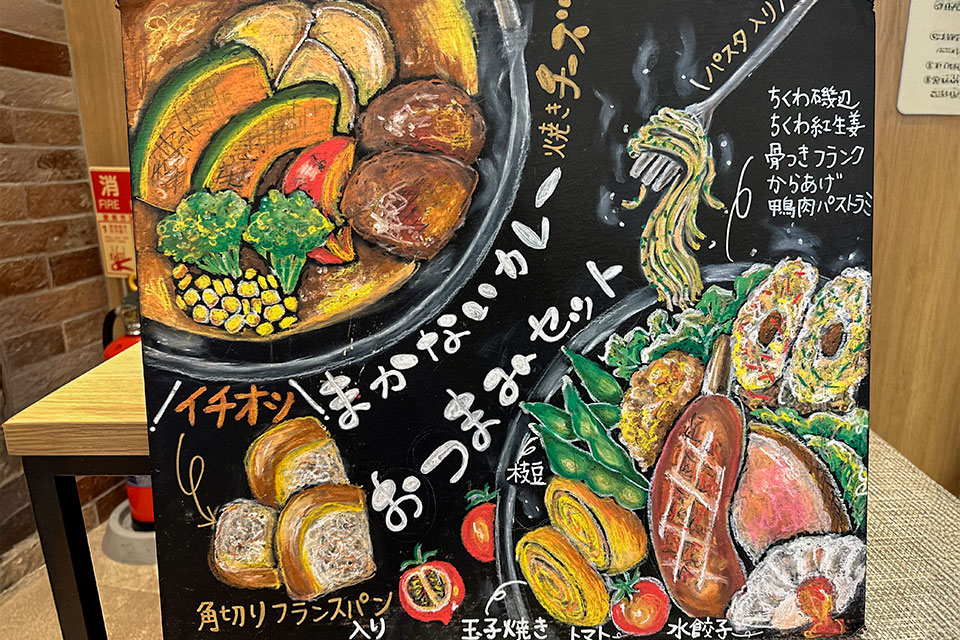 焼きチーズ
まかないカレー
イチオシ
角切りフランスパン
入り
パスタ入り
おつまみセット
ちくわ磯辺
ちくわ紅生姜
骨つきフランク
からあげ
鴨肉パストラミ
枝豆
玉子焼き
トマト
水餃子
消
FIRE